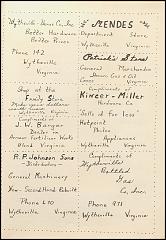 Wytheville Home Co., Inc.
Better Hardware
Better Prices
Phone 142
Wytheville
Virginia
Shop at the
Family Store
Wytheville
Virginia
Compliments of
J. W. Bangar
Dealer in
Fertilizer
Bland Virginia
R. P. Johnson Sons
Distributor
General Machinery
New-Second Hand-Rebuilt
Phone 670
Wytheville Virginia
MENDES
Department Store
Wytheville
Virginia
Patrick's Store
General Merchandise
Gas & Oil
Virginia
Compliments of
Kinzer - Miller
Hardware Co.
Sells it for less
Philco
Appliances
Wytheville Virginia
Compliments of
Wytheville
Bottled
Gas
Co., Inc.
Phone 971
Wytheville Virginia